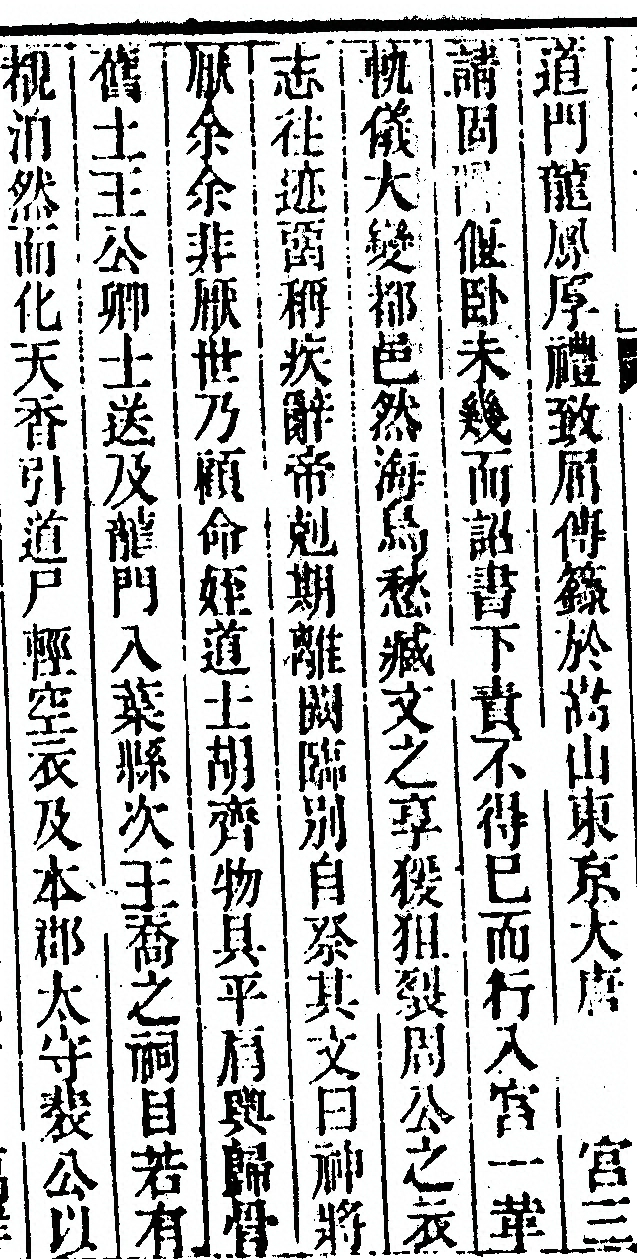 道門龍鳳厚禮致屈傳籙於嵩山東京大唐 宮三
請固辭偃卧未幾而詔書下責不得巳而行入宮一革
軌儀大變都邑然海鳥愁臧文之享猨狙裂周公之衣
志往迹留稱疾辭帝剋期離闕臨別自祭其文曰神將
厭余余非厭世乃顧命姪道士胡齊物具平肩輿歸骨
舊土王公卿士送及龍門入葉縣次王喬之祠目若有
覩泊然而化天香引道尸輕空衣及本郡太守裴公以